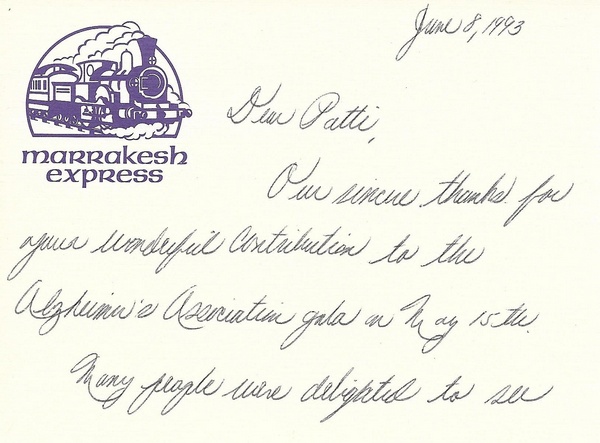 June 8, 1993
marrakesh
express
Dear Patti,
Our sincere thanks for
your wonderful contribution to the
Alzheimer's Association gala on May 15th.
Many people were delighted to see